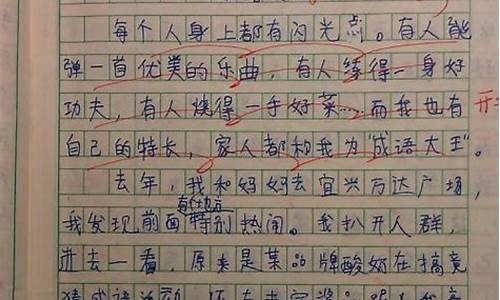 每个人身上都有闪光点。有人能
弹一首优美的乐曲，有人练得一身好
功夫，有人烧得一手好菜……而我也有
开
自己的特长，家人都称我为“成语大王”。
去年，我和妈妈去宜兴万达广场，
我发现前面有个地方特别热闹。我扒开人群，
进去一看，原来是某品牌酸奶在搞竞
猜成语活动